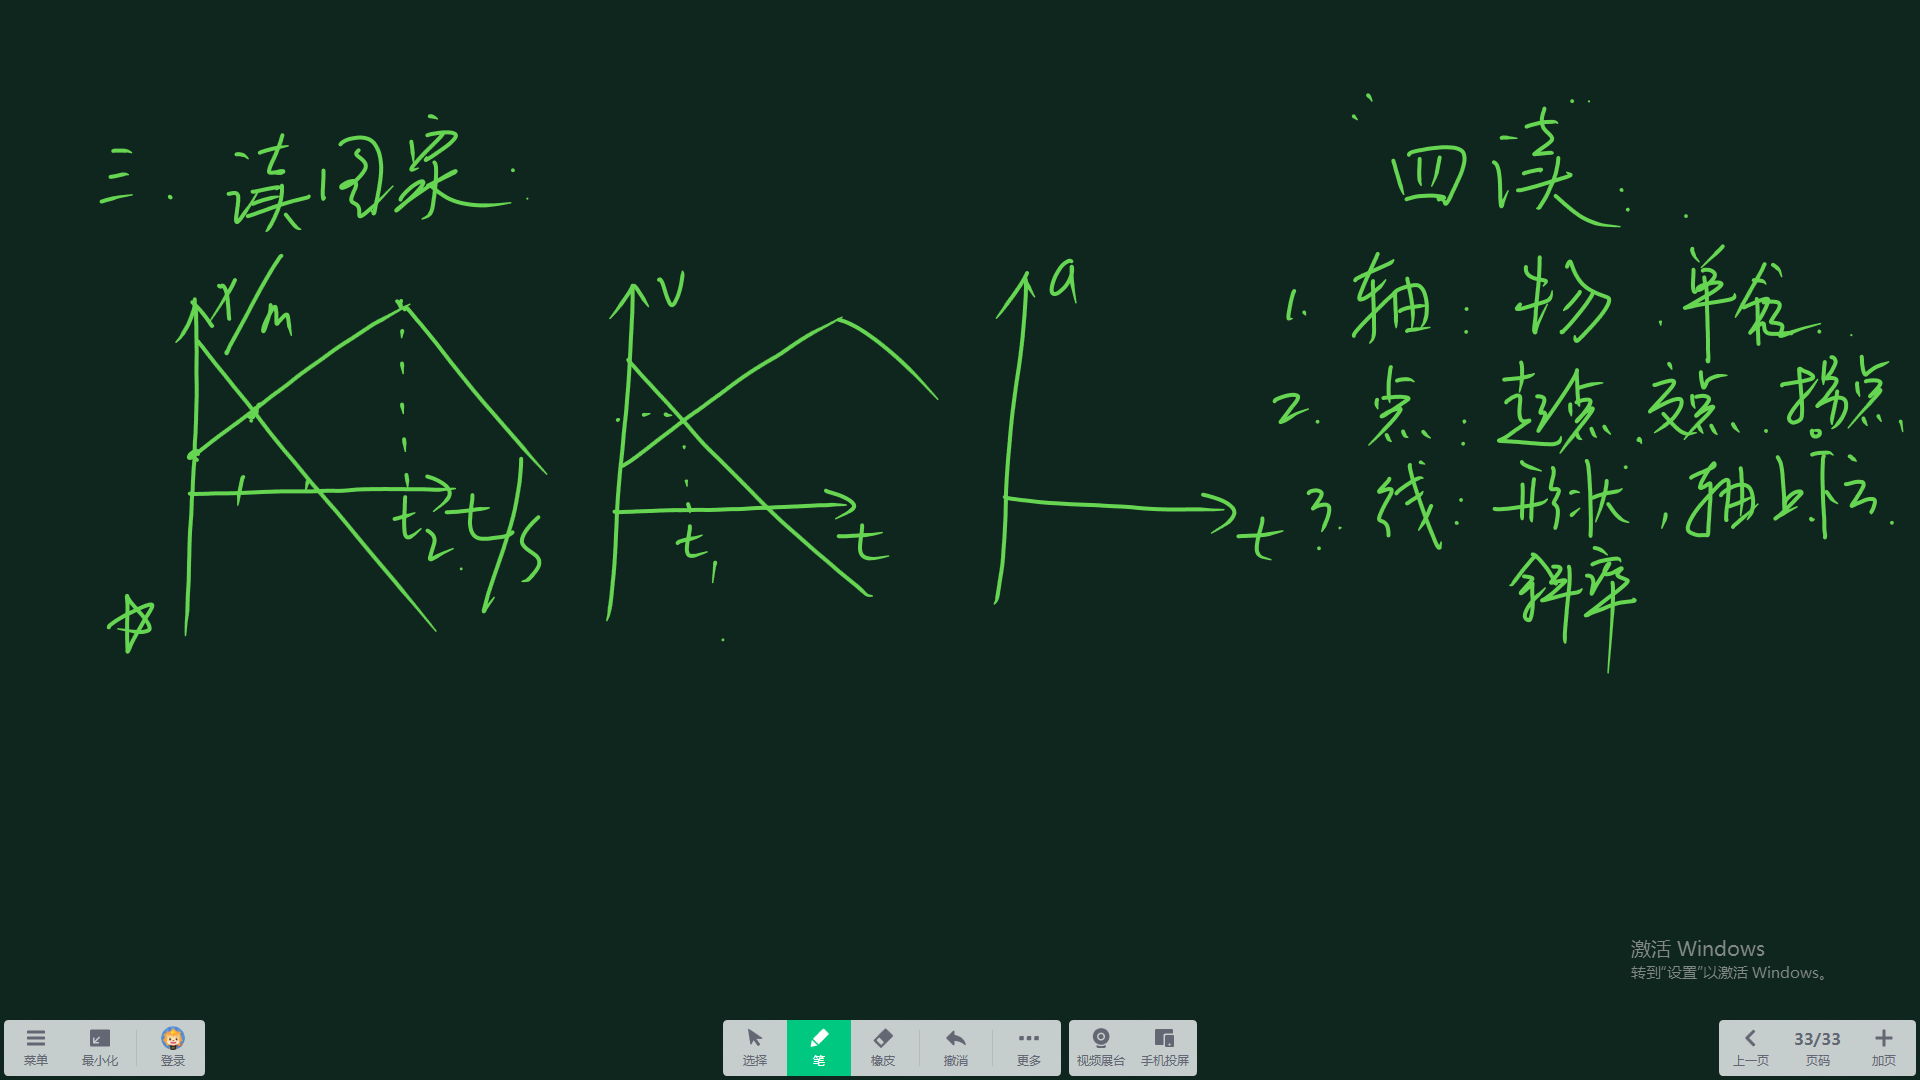 三. 读图象:
四读:
x/m
t₂
t/s
v
t₁
t
a
t
1. 轴: 物. 单位.
2. 点: 起点. 交点. 拐点.
3. 线: 形状, 轴上下方.
斜率
激活 Windows
转到“设置”以激活 Windows。
菜单 最小化 登录
选择 笔 橡皮 撤消 更多
视频展台 手机投屏
33/33
上一页 页码 加页